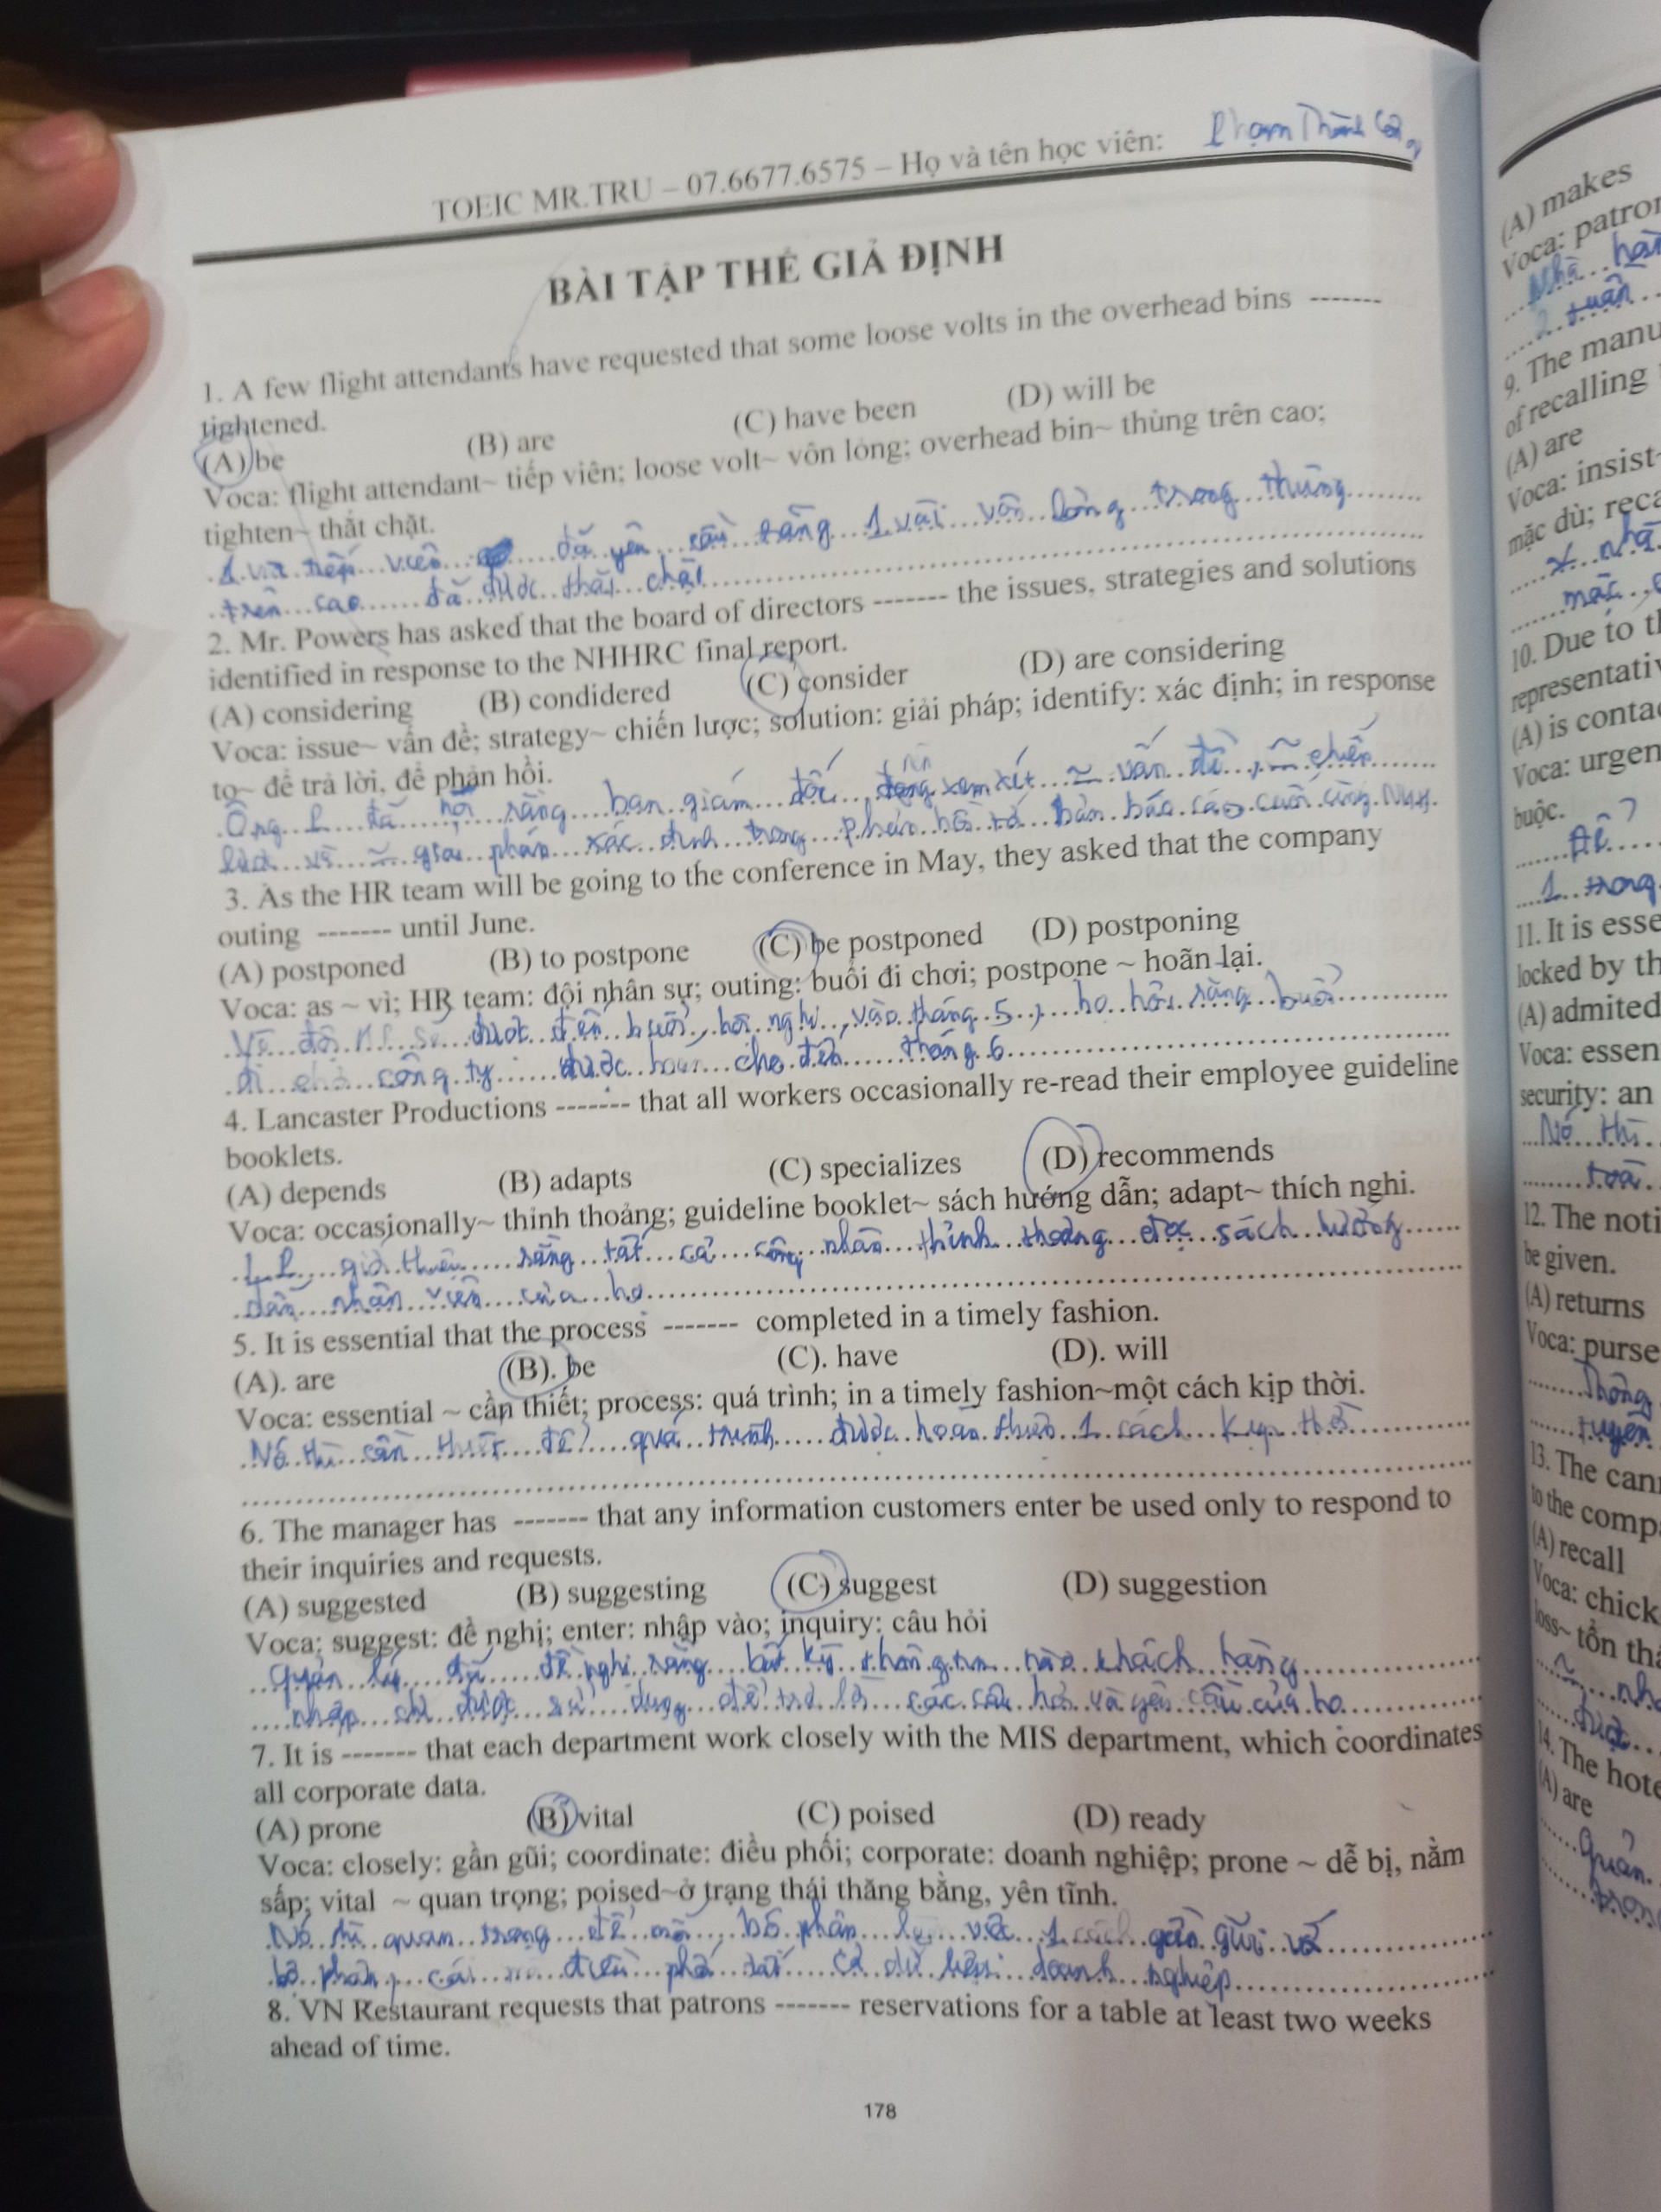 TOEIC MR.TRU – 07.6677.6575 – Họ và tên học viên: Phạm Thành
BÀI TẬP THỂ GIẢ ĐỊNH
1. A few flight attendants have requested that some loose volts in the overhead bins -------
tightened.
(A) be (B) are (C) have been (D) will be
Voca: flight attendant~ tiếp viên; loose volt~ vôn lỏng; overhead bin~ thùng trên cao;
tighten~ thắt chặt.
1 vài tiếp viên đã yêu cầu rằng 1 vài vôn lỏng trong thùng
trên cao đã được thắt chặt
2. Mr. Powers has asked that the board of directors ------- the issues, strategies and solutions
identified in response to the NHHRC final report.
(A) considering (B) condidered (C) consider (D) are considering
Voca: issue~ vấn đề; strategy~ chiến lược; solution: giải pháp; identify: xác định; in response
to~ để trả lời, để phản hồi.
Ông P đã hỏi rằng ban giám đốc xem xét ~ vấn đề, ~ chiến
lược và ~ giải pháp xác định trong phản hồi tới bản báo cáo cuối cùng NHH.
3. As the HR team will be going to the conference in May, they asked that the company
outing ------- until June.
(A) postponed (B) to postpone (C) be postponed (D) postponing
Voca: as ~ vì; HR team: đội nhân sự; outing: buổi đi chơi; postpone ~ hoãn lại.
Vì đội sẽ được đến buổi hội nghị vào tháng 5, họ hỏi rằng buổi
đi chơi công ty được hoãn cho đến tháng 6
4. Lancaster Productions ------- that all workers occasionally re-read their employee guideline
booklets.
(A) depends (B) adapts (C) specializes (D) recommends
Voca: occasionally~ thỉnh thoảng; guideline booklet~ sách hướng dẫn; adapt~ thích nghi.
L.P giới thiệu rằng tất cả công nhân thỉnh thoảng đọc sách hướng
dẫn nhân viên của họ
5. It is essential that the process ------- completed in a timely fashion.
(A). are (B). be (C). have (D). will
Voca: essential ~ cần thiết; process: quá trình; in a timely fashion~một cách kịp thời.
Nó thì cần thiết để quá trình được hoàn thiện 1 cách kịp thời
6. The manager has ------- that any information customers enter be used only to respond to
their inquiries and requests.
(A) suggested (B) suggesting (C) suggest (D) suggestion
Voca: suggest: đề nghị; enter: nhập vào; inquiry: câu hỏi
Quản lý đã đề nghị rằng bất kỳ thông tin nào khách hàng
nhập chỉ được sử dụng để trả lời các câu hỏi và yêu cầu của họ
7. It is ------- that each department work closely with the MIS department, which coordinates
all corporate data.
(A) prone (B) vital (C) poised (D) ready
Voca: closely: gần gũi; coordinate: điều phối; corporate: doanh nghiệp; prone ~ dễ bị, nằm
sấp; vital ~ quan trọng; poised~ở trạng thái thăng bằng, yên tĩnh.
Nó thì quan trọng để mỗi bộ phận làm việc 1 cách gần gũi với
bộ phận, cái mà điều phối tất cả dữ liệu doanh nghiệp
8. VN Restaurant requests that patrons ------- reservations for a table at least two weeks
ahead of time.
178
(A) makes
Voca: patron
tuần
9. The manu
of recalling
(A) are
Voca: insist~
mặc dù; reca
10. Due to th
representativ
(A) is contac
Voca: urgen
buộc.
Để
1 trong
11. It is esse
locked by th
(A) admited
Voca: essen
security: an
Nó thì
toà
12. The noti
be given.
(A) returns
Voca: purse
Thông
tuyển
13. The cann
to the comp
(A) recall
Voca: chick
loss~ tổn thấ
được
14. The hote
(A) are
Quản
trọn